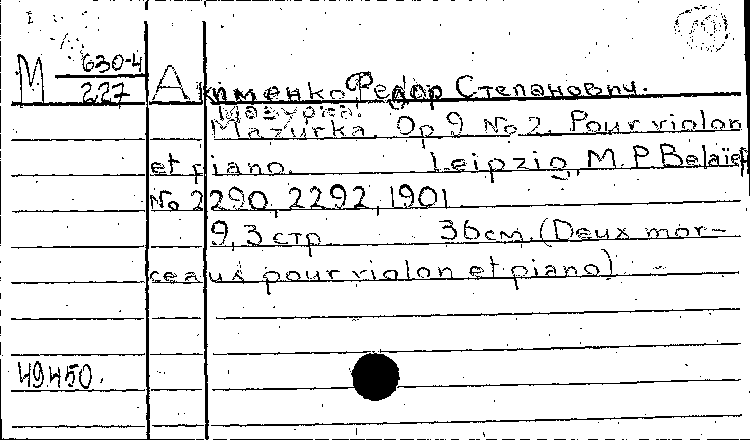 М 630-4
227
Акименко Федор Степанович.
Мазурка.
Mazurka. Op 9 No 2. Pour violon
et piano. Leipzig, M. P. Belaïeff
No 2290, 2292, 1901
9, 3 стр 36 см. (Deux mor-
ceaux pour violon et piano) -
49450.